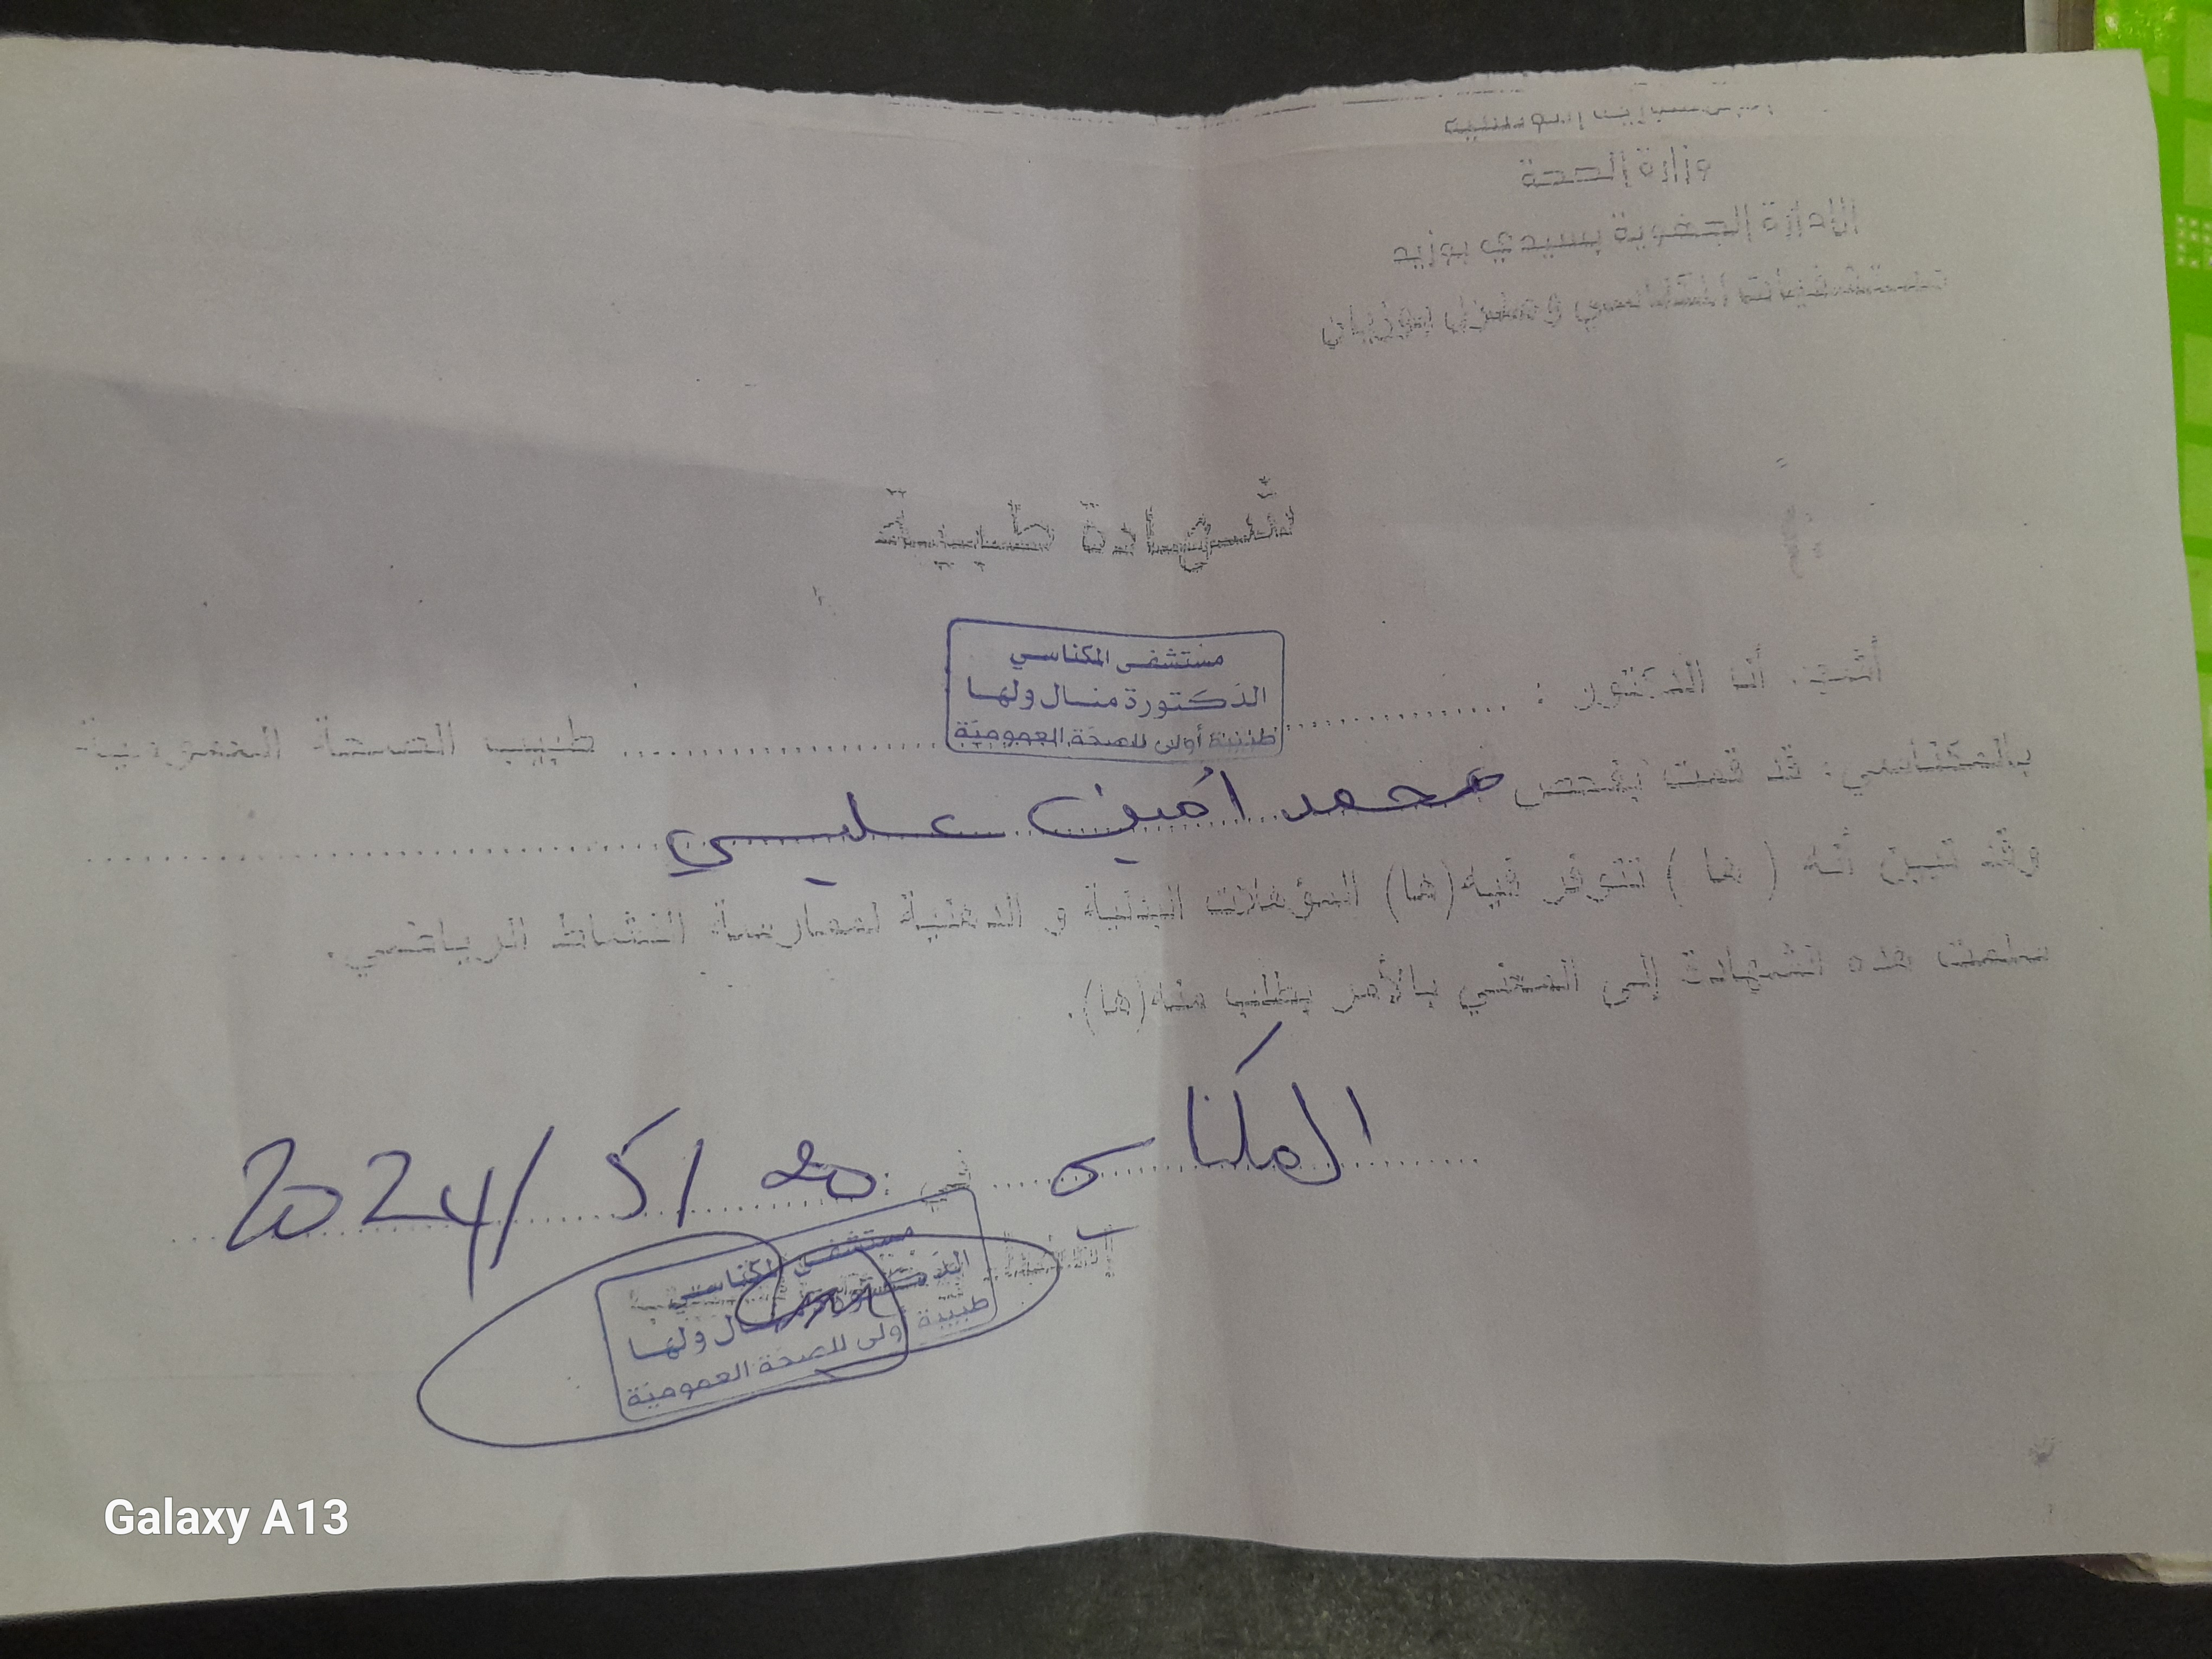 وزارة الصحة
الادارة الجهوية بسيدي بوزيد
مستشفيات المكناسي ومنزل بوزيان
شهادة طبية
مستشفى المكناسي
الدكتورة منال ولها
طبيبة أولى للصحة العمومية
أنا الدكتور :
طبيب الصحة العمومية
بالمكناسي، قد قمت بفحص محمد أمين عليبي
وقد تبين أنه ( ها ) تتوفر فيه (ها) المؤهلات البدنية و الذهنية لممارسة النشاط الرياضي.
سلمت هذه الشهادة إلى المعني بالأمر بطلب منه(ها).
المكناسي في : 20 / 5 / 2024
مستشفى المكناسي
الدكتورة منال ولها
طبيبة أولى للصحة العمومية
Galaxy A13